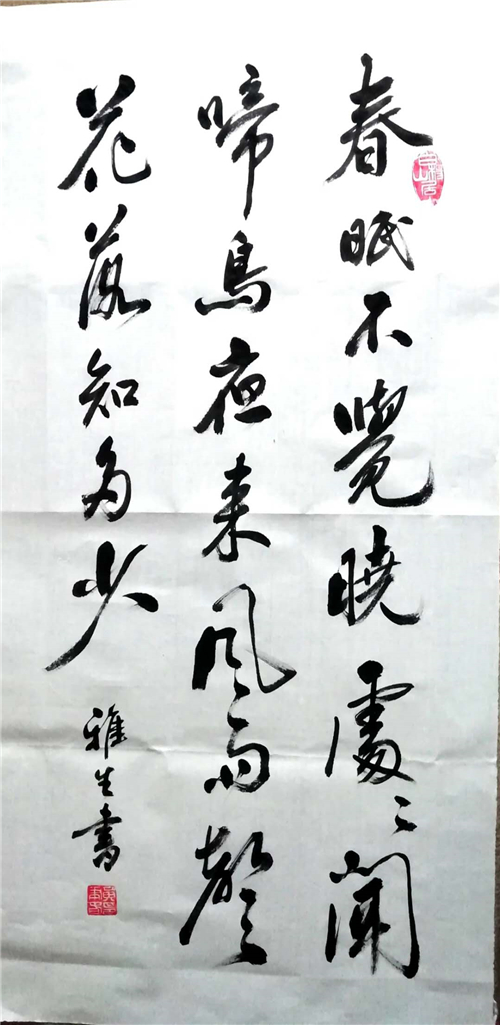 春眠不覺曉處〻聞
啼鳥夜来風雨聲
花落知多少
雅生書